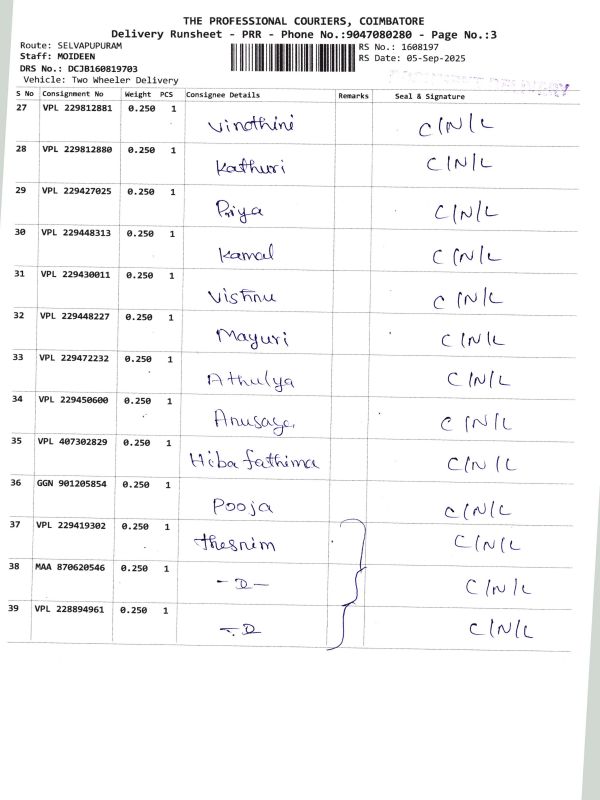 THE PROFESSIONAL COURIERS, COIMBATORE
Delivery Runsheet - PRR - Phone No.:9047080280 - Page No.:3
Route: SELVAPUPURAM
Staff: MOIDEEN
DRS No.: DCJB160819703
Vehicle: Two Wheeler Delivery
RS No.: 1608197
RS Date: 05-Sep-2025
S No Consignment No Weight PCS Consignee Details Remarks Seal & Signature
27 VPL 229812881 0.250 1 Vinothini C/N/L
28 VPL 229812880 0.250 1 Kathuri C/N/L
29 VPL 229427025 0.250 1 Priya C/N/L
30 VPL 229448313 0.250 1 Kamal C/N/L
31 VPL 229430011 0.250 1 Vishnu C/N/L
32 VPL 229448227 0.250 1 Mayuri C/N/L
33 VPL 229472232 0.250 1 Athulya C/N/L
34 VPL 229450600 0.250 1 C/N/L
35 VPL 407302829 0.250 1 Hiba fathima C/N/L
36 GGN 901205854 0.250 1 Pooja C/N/L
37 VPL 229419302 0.250 1 thesnim C/N/L
38 MAA 870620546 0.250 1 -D- C/N/L
39 VPL 228894961 0.250 1 -D C/N/L